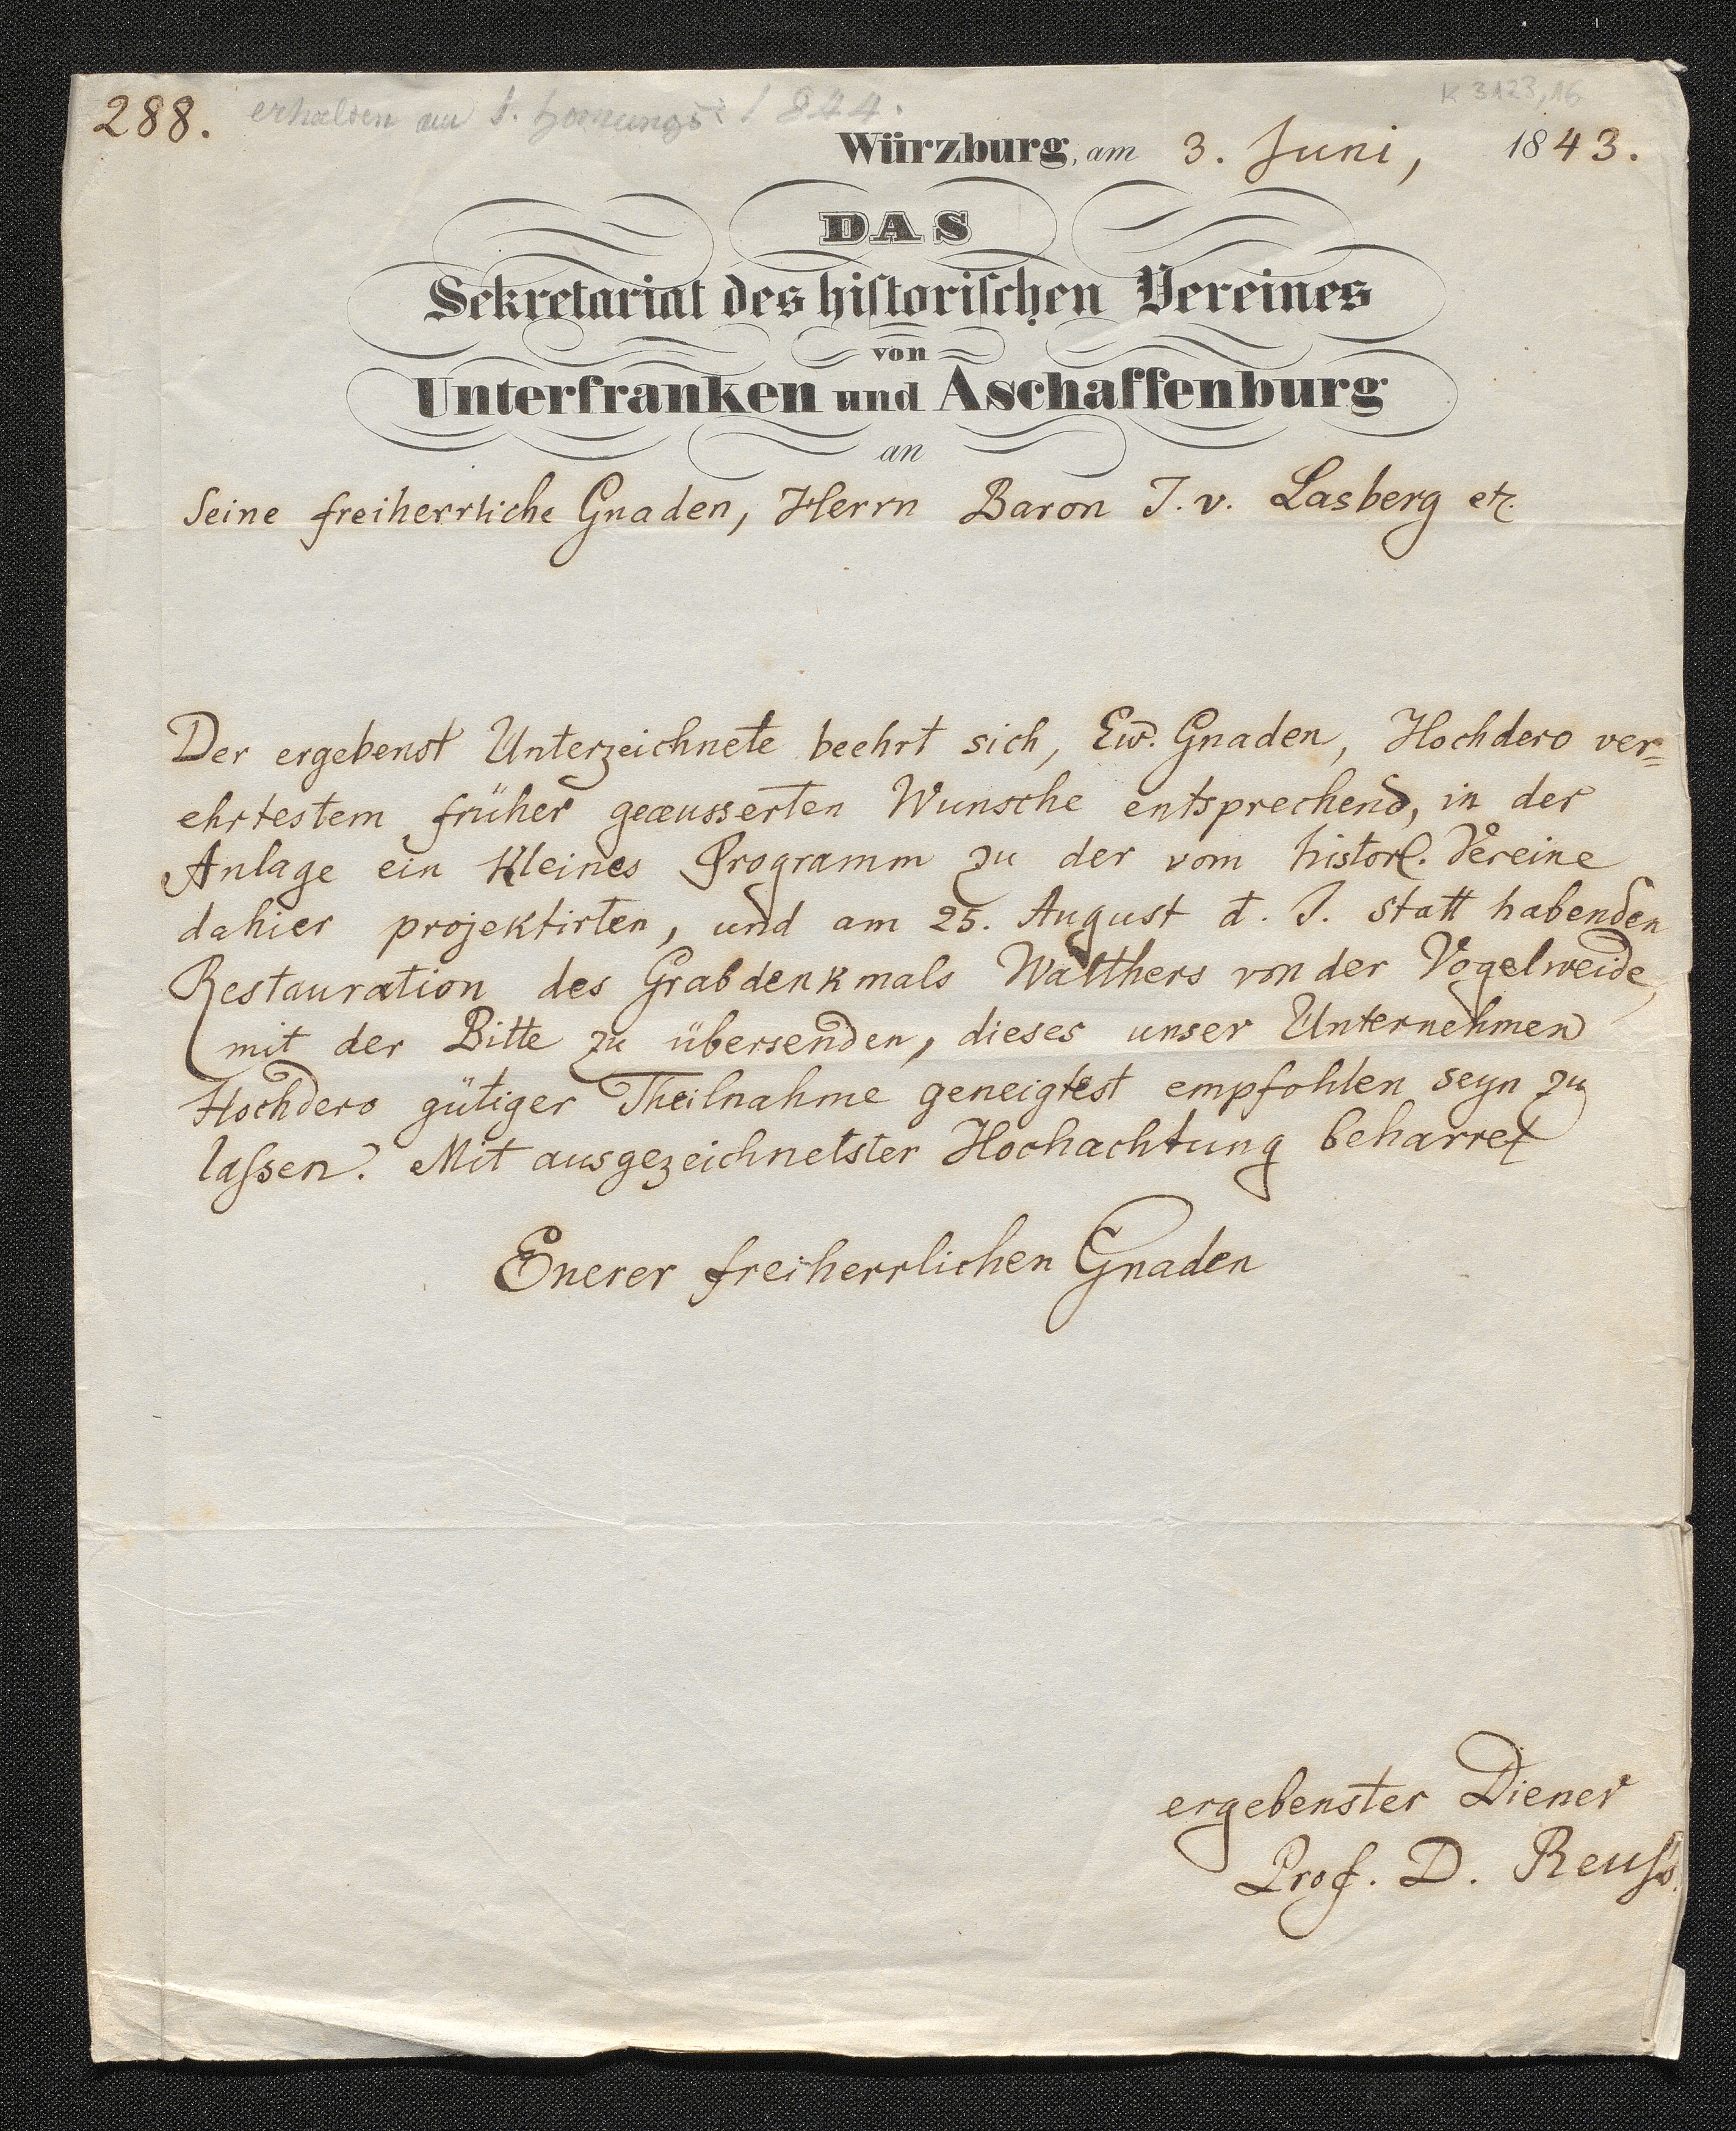 288. erhalten am 1. hornungs: 1844.
K 3123,16
Würzburg, am 3. Juni, 1843.
DAS
Sekretariat des hiſtoriſchen Vereines
von
Unterfranken und Aschaffenburg
an
Seine freiherrliche Gnaden, Herrn Baron J. v. Lasberg etc.
Der ergebenst Unterzeichnete beehrt sich, Ew. Gnaden, Hochdero ver=
ehrtestem früher geæusserten Wunsche entsprechend, in der
Anlage ein kleines Programm zu der vom histor. Vereine
dahier projektirten, und am 25. August d. J. statt habenden
Restauration des Grabdenkmals Walthers von der Vogelweide,
mit der Bitte zu übersenden, dieses unser Unternehmen
Hochdero gütiger Theilnahme geneigtest empfohlen seyn zu
laſsen. Mit ausgezeichnetster Hochachtung beharret
Euerer freiherrlichen Gnaden
ergebenster Diener
Prof. D. Reuſs.